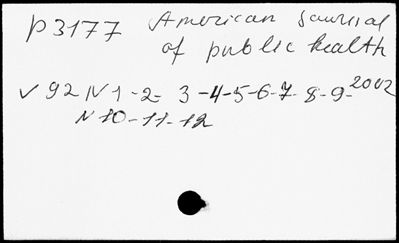 p3177 American Journal
of public health
v 92 N 1-2- 3-4-5-6-7-8-9-2002
N 10-11-12